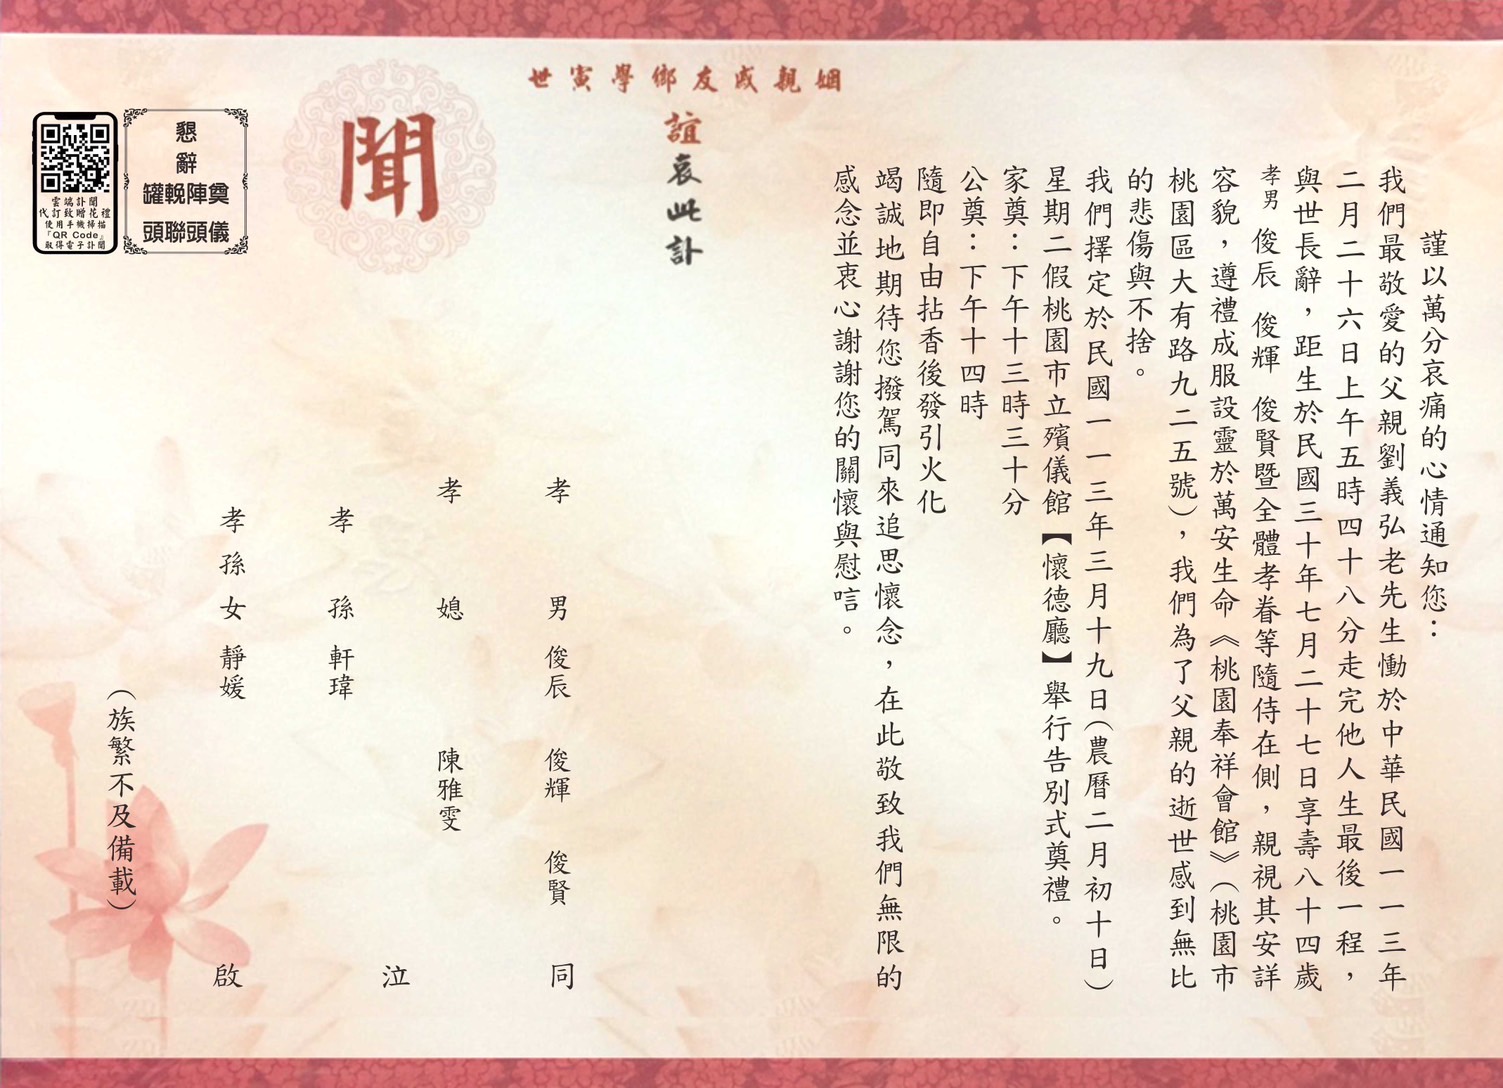 謹以萬分哀痛的心情通知您：
我們最敬愛的父親劉義弘老先生慟於中華民國一一三年
二月二十六日上午五時四十八分走完他人生最後一程，
與世長辭，距生於民國三十年七月二十七日享壽八十四歲
孝男 俊辰 俊輝 俊賢暨全體孝眷等隨侍在側，親視其安詳
容貌，遵禮成服設靈於萬安生命《桃園奉祥會館》（桃園市
桃園區大有路九二五號），我們為了父親的逝世感到無比
的悲傷與不捨。
我們擇定於民國一一三年三月十九日（農曆二月初十日）
星期二假桃園市立殯儀館【懷德廳】舉行告別式奠禮。
家奠：下午十三時三十分
公奠：下午十四時
隨即自由拈香後發引火化
竭誠地期待您撥駕同來追思懷念，在此敬致我們無限的
感念並衷心謝謝您的關懷與慰唁。
姻親戚友鄉學寅世
誼哀此訃
聞
孝男 俊辰 俊輝 俊賢
孝媳 陳雅雯
孝孫 軒瑋
孝孫女 靜媛
（族繁不及備載）
同泣啟
懇辭
奠陣輓罐
儀頭聯頭
雲端訃聞
代訂致贈花禮
使用手機掃描
「QR Code」
取得電子訃聞